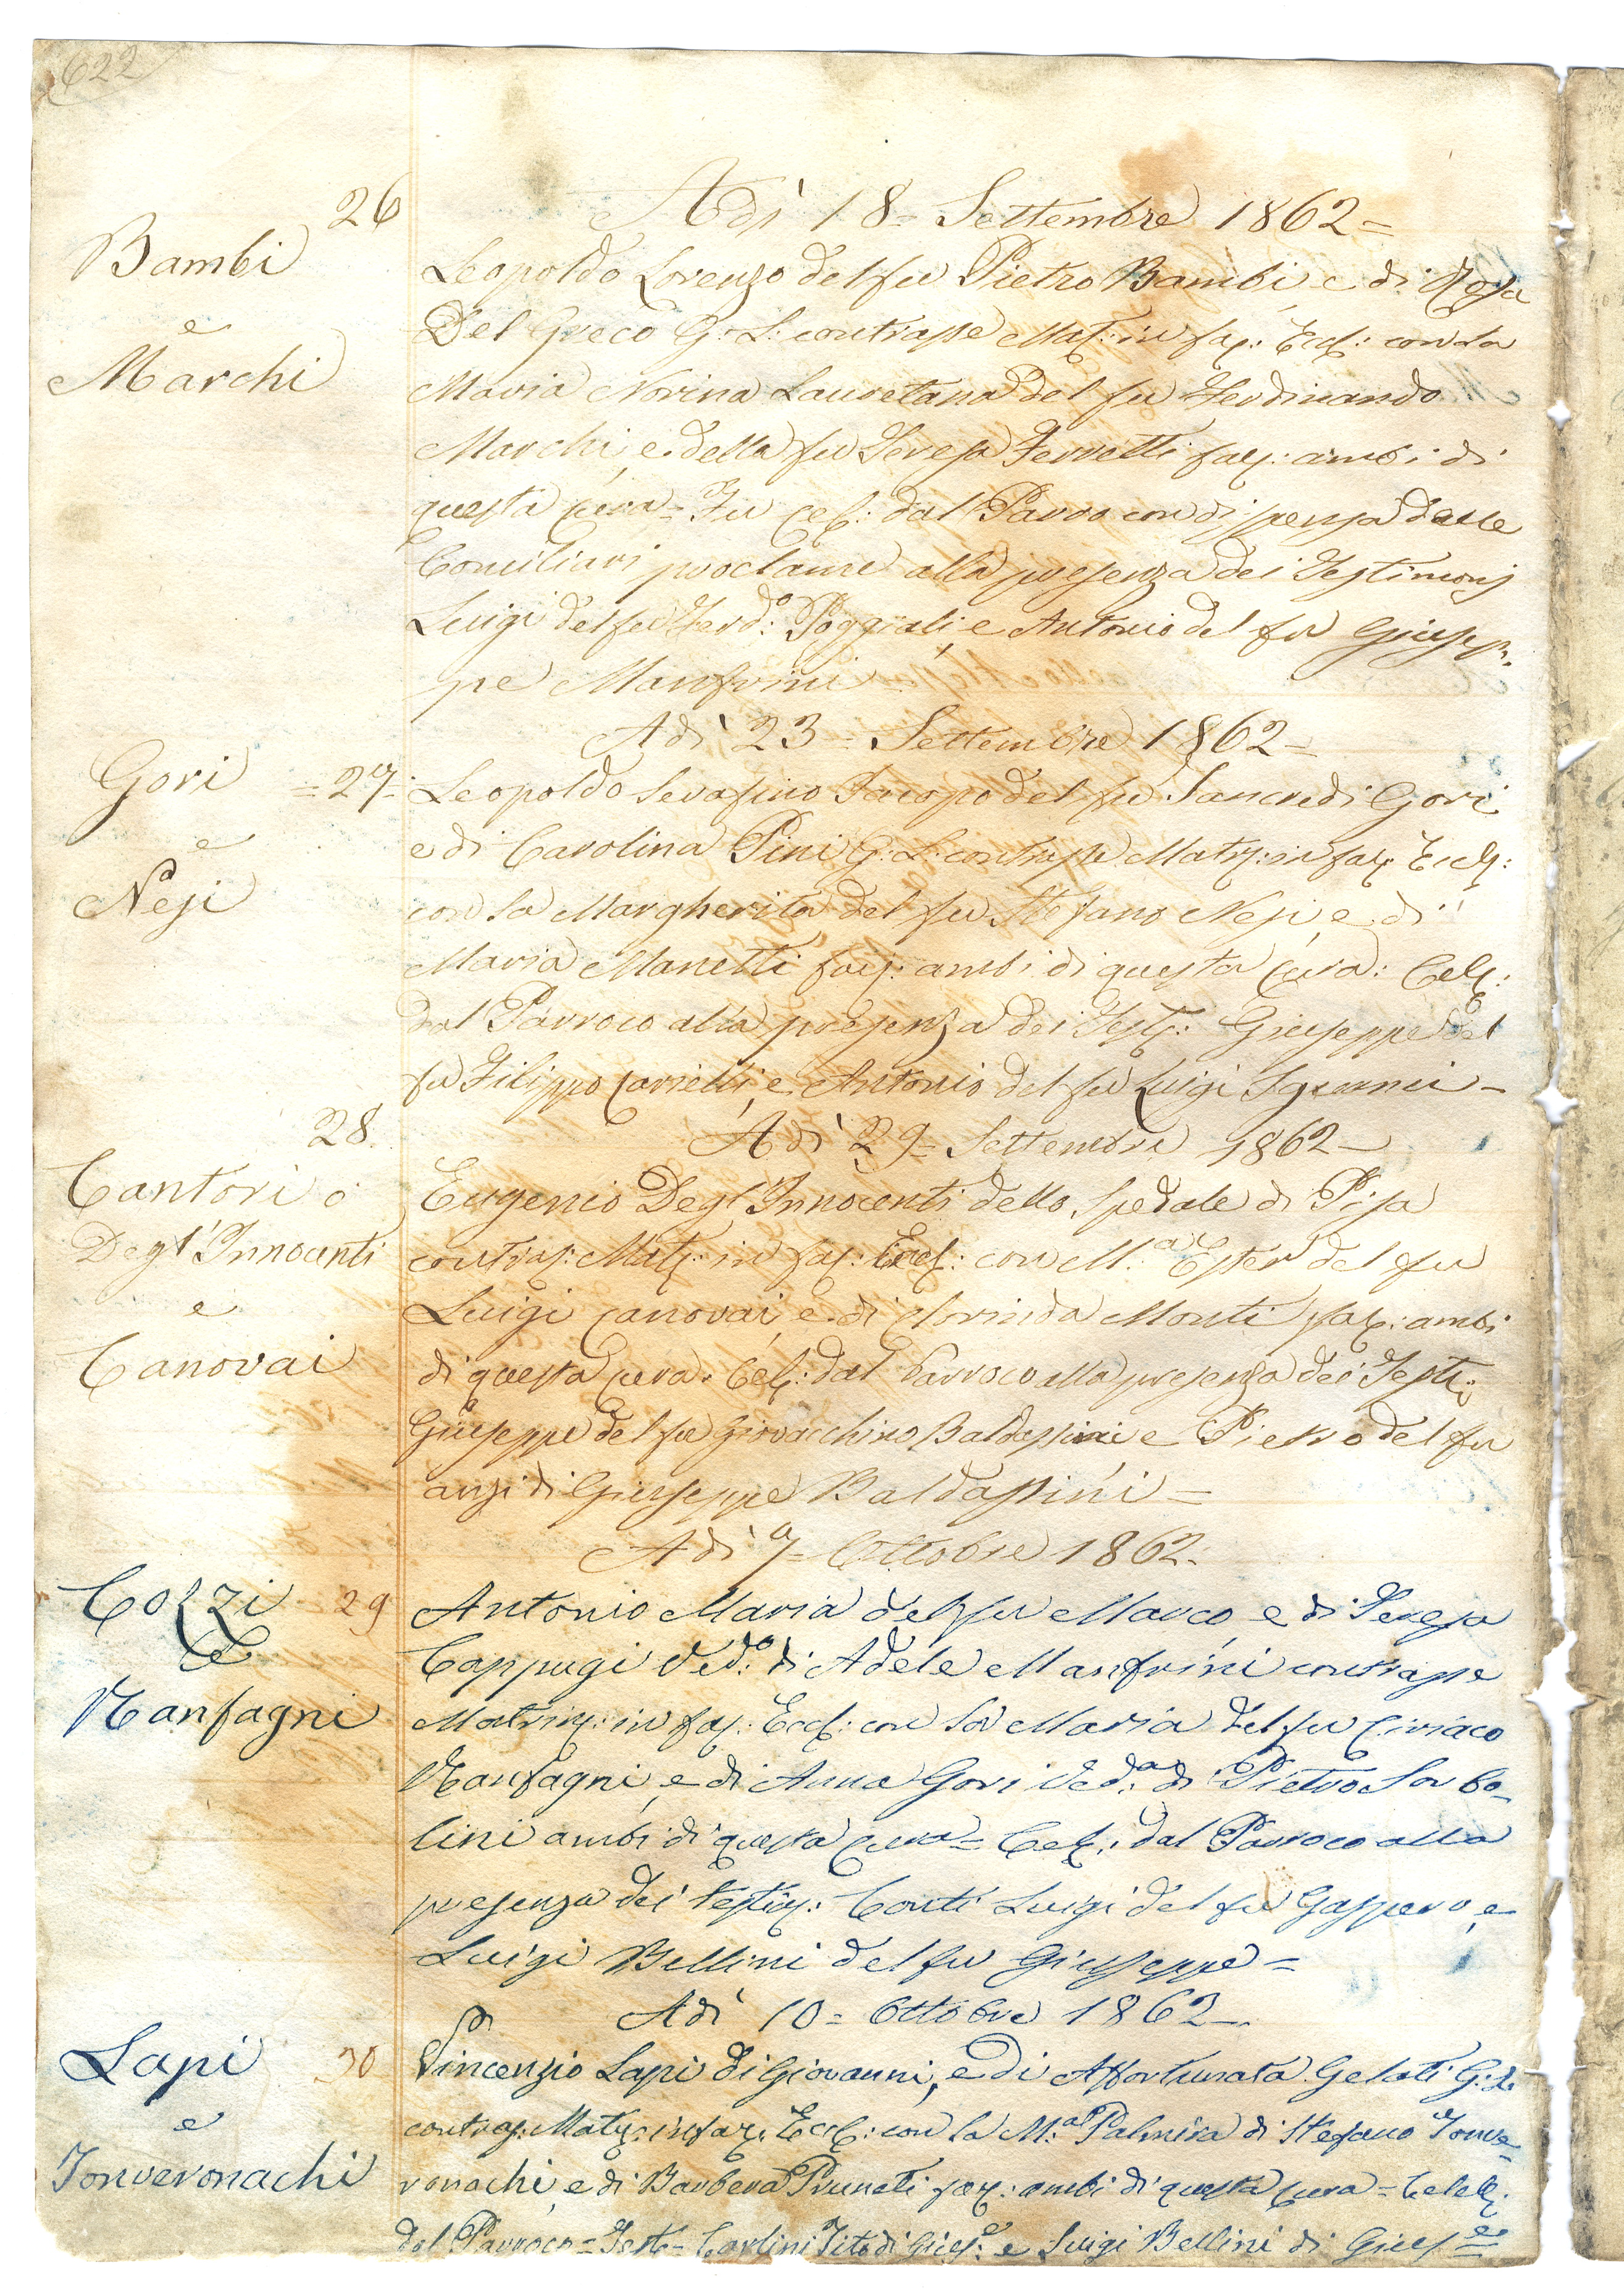 622
26
Adì 18 = Settembre 1862 =
Bambi
e
Marchi
Leopoldo Lorenzo del fu Pietro Bambi e di Rosa
Del Greco G: L: contrasse Mat: in fac: Eccl: con la
Maria Norina Lauretana del fu Ferdinando
Marchi, e della fu Teresa Ferretti fac: ambi di
questa Cura = Fu Cel: dal Parro con dispensa dalle
Conciliari proclame alla presenza dei Testimonj
Luigi del fu Ferdo: Poggiali, e Antonio del fu Giusep-
pe Manfrini
Adì 23 = Settembre 1862 =
Gori
e
Nesi
= 27 =
Leopoldo Serafino Jacopo del fu Tancredi Gori
e di Carolina Pini G: L: contrasse Matr: in fac: Eccl:
con la Margherita del fu Stefano Nesi, e di
Maria Manetti fac: ambi di questa Cura: Cel:
dal Parroco alla presenza dei Test: Giuseppe del
fu Filippo, e Antonio del fu Luigi
28
Adì 29 = Settembre 1862 =
Cantori o
Degl'Innocenti
e
Canovai
Eugenio Degl'Innocenti dello Spedale di Pisa
contras: Mat: in fac: Eccl: con M.a Ester del fu
Luigi Canovai, e di Clorinda Monti fac: ambi
di questa Cura. Cel: dal Parroco alla presenza dei Test:
Giuseppe del fu Giovacchino Baldassini e Pietro del fu
anzi di Giuseppe Baldassini =
Adì 7 = Ottobre 1862.
Cozzi
e
Manfagni
29
Antonio Maria del fu Marco e di Teresa
Cappugi Ved.o di Adele Manfrini contrasse
Matrim: in fac: Eccl: con la Maria del fu Ciriaco
Manfagni, e di Anna Gori Ved.a di Pietro Sorbo-
lini ambi di questa Cura = Cel: dal Parroco alla
presenza dei testim: Conti Luigi del fu Gaspero, e
Luigi Bellini del fu Giuseppe =
Adì 10 = Ottobre 1862 =
Lapi
e
Tonveronachi
30
Vincenzio Lapi di Giovanni, e di Affortunata Gelati G: L:
contras: Matr: in fac: Eccl: con la M.a Palmira di Stefano Tonve-
ronachi, e di Barbera Pruneti fac: ambi di questa Cura = Celeb:
dal Parroco = Test = Carlini Tito di Gius.e e Luigi Bellini di Gius.e